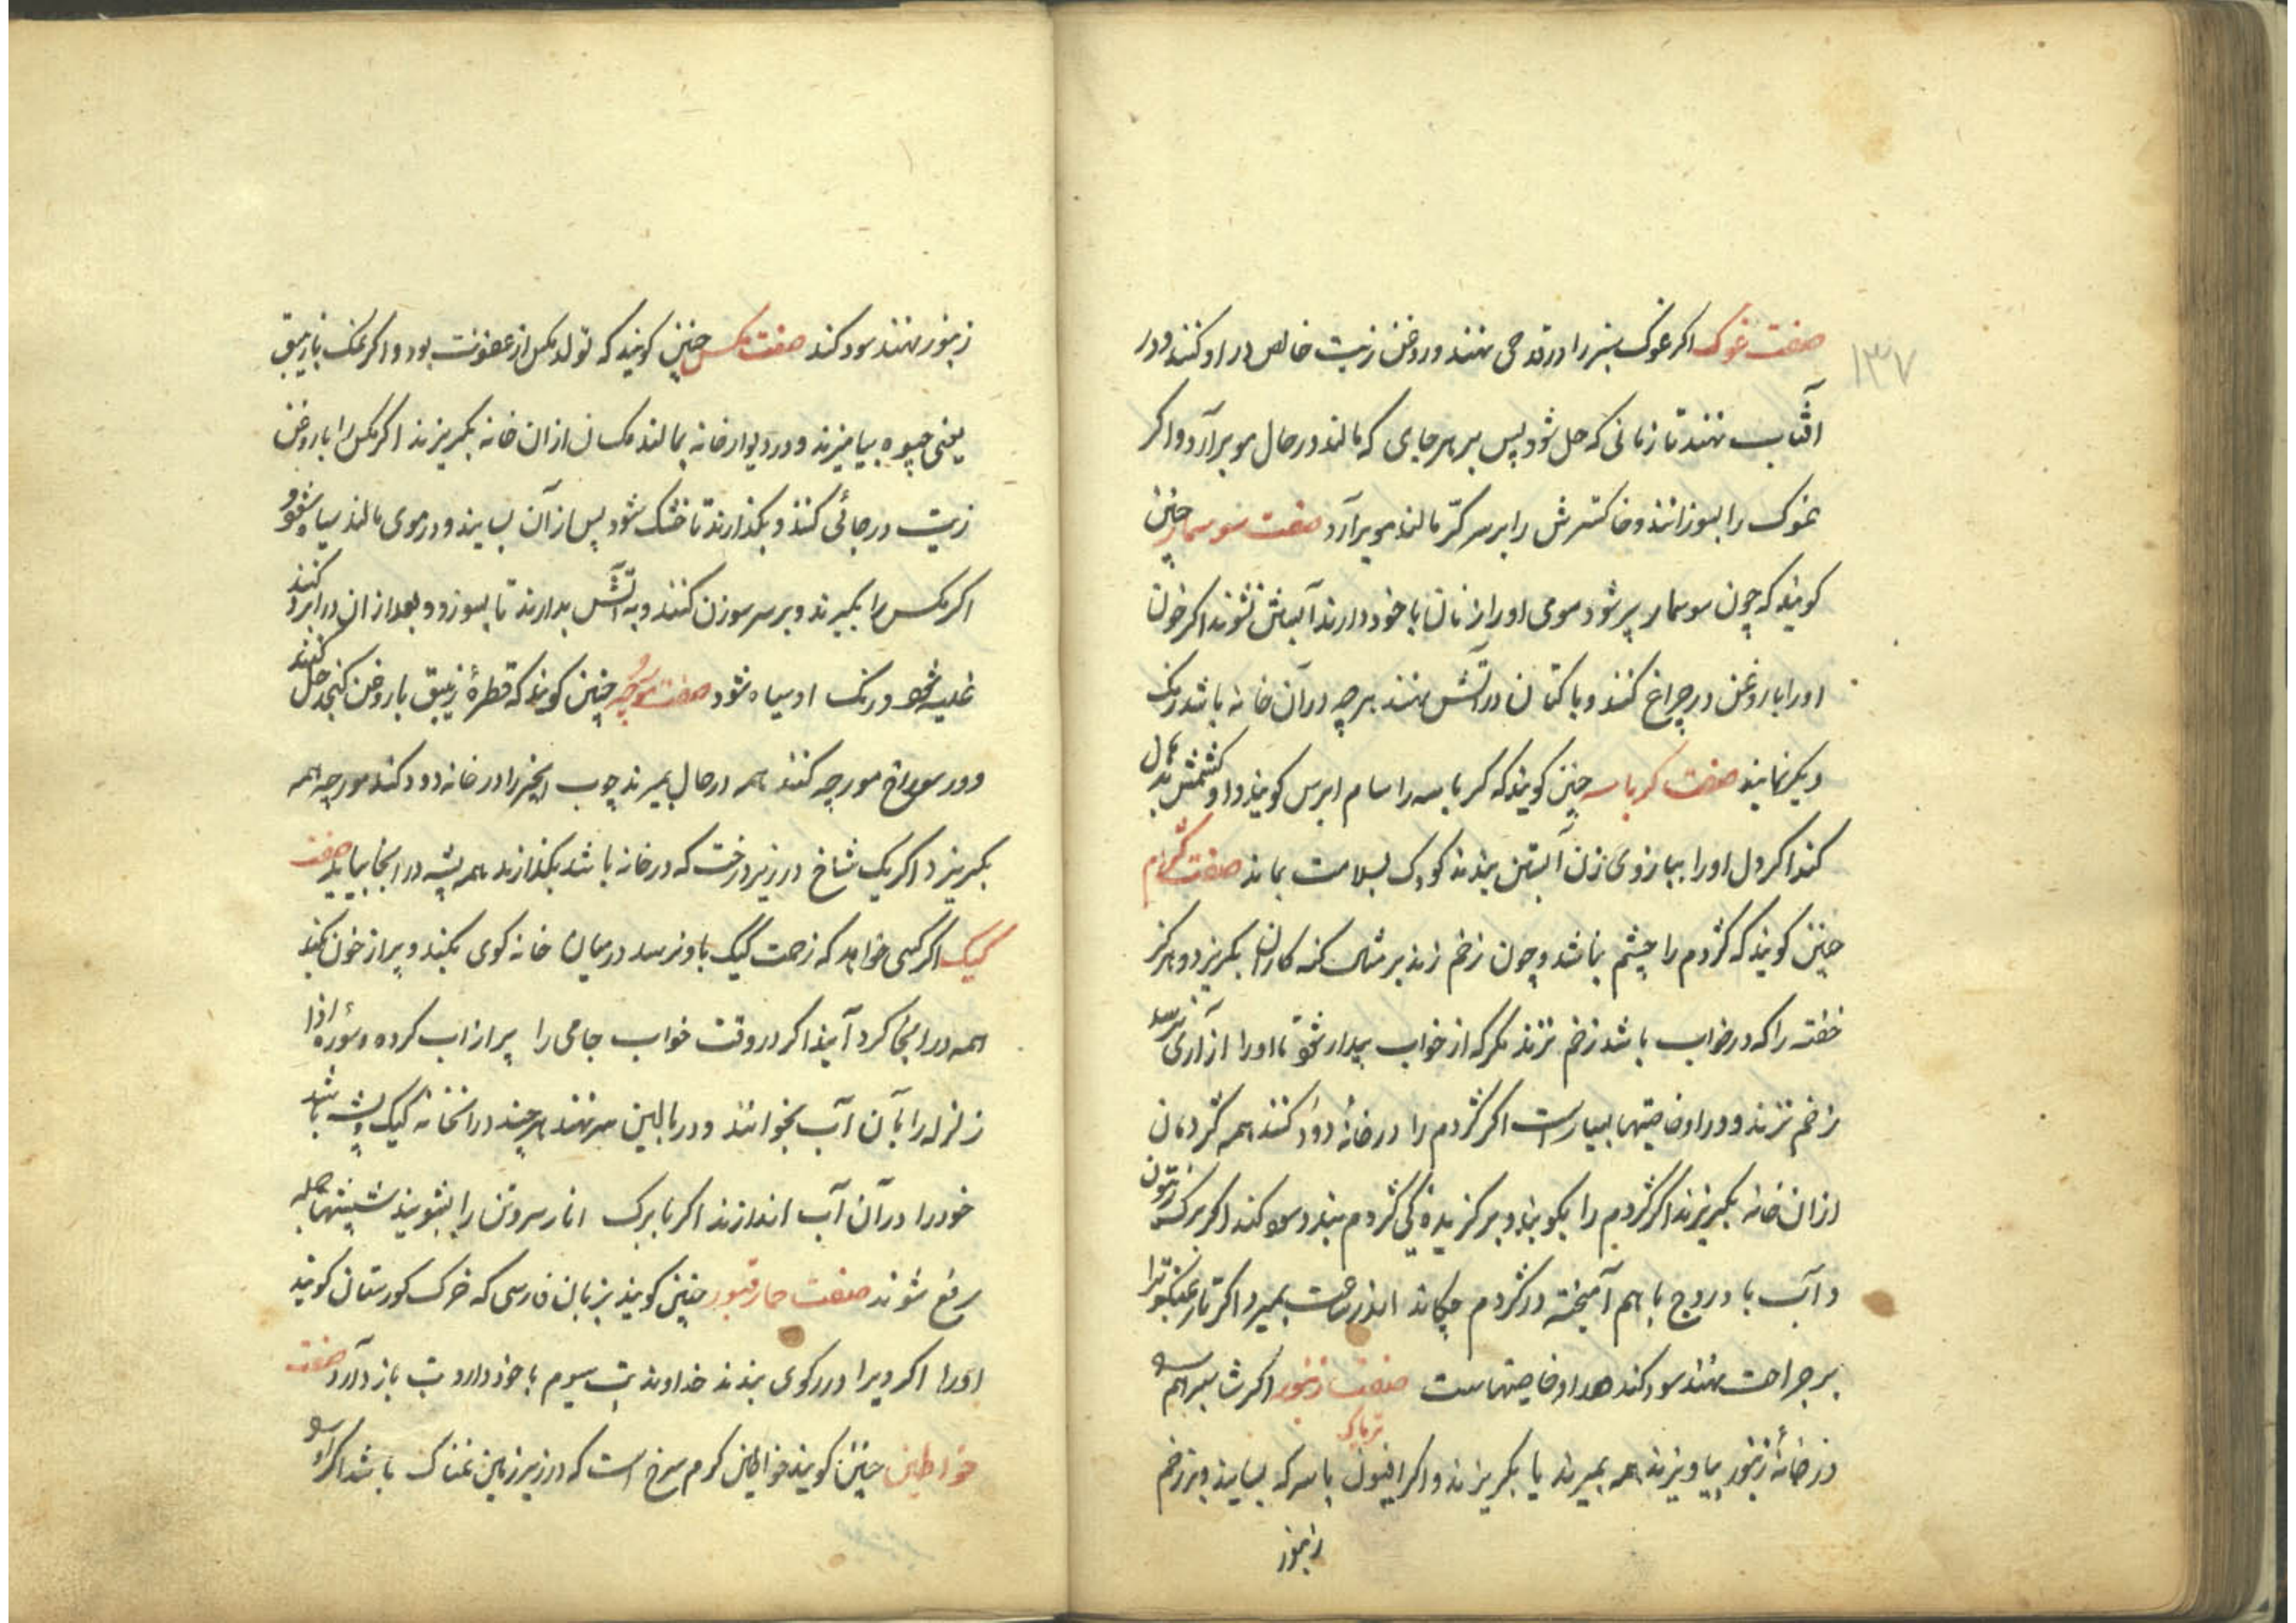 ۱۳۷
صفت غوک اکر غوک سبز را در قدحی نهند و روغن زیت خالص در او کنند و در
آفتاب نهند تا زمانی که حل شود پس بر هر جای که مالند در حال مو برآرد و اکر
غوک را بسوزانند و خاکسترش را بر سر کر مالند مو برآرد صفت سوسمار چنین
کویند که چون سوسمار پیر شود موی او را زنان با خود دارند آبستن نشوند اکر خون
او را با روغن در چراغ کنند و با کتان در آتش نهند هرچه در آن خانه باشد رنک
دیکر نمایند صفت کرباسه چنین کویند که کرباسه را سام ابرص کویند و او
کند اکر دل او را ببازوی زن آبستن بندند کودک بسلامت بماند صفت کژدم
چنین کویند که کژدم را چشم نباشد و چون زخم زند بکریزد و هرکز
خفته را که در خواب باشد زخم نزند مکر که از خواب بیدار شود تا او را آزاری نرسد
زخم نزند و در او خاصیتها بسیار است اکر کژدم را در خانه دود کنند همه کژدمان
از ان خانه بکریزند اکر کژدم را بکویند و بر کزیده کی کژدم بندند سود کند اکر برک زیتون
و آب با دروج با هم آمیخته در کژدم چکانند بمیرد اکر تار عنکبوترا
بر جراحت نهند سود کند در او خاصیتهاست صفت زنبور اکر
در خانهٔ زنبور بیاویزند همه بمیرند یا بکریزند و اکر افیون با سرکه بسایند و بر زخم
تریاک
زنبور
زنبور نهند سود کند صفت مکس چنین کویند که تولد مکس از عفونت بود و اکر نمک با زیبق
یعنی جیوه بیامیزند و در دیوار خانه بمالند مکسان از ان خانه بکریزند اکر مکس را با روغن
زیت در جائی کنند و بکذارند تا خشک شود پس از آن بسایند و در موی مالند سیاه شود و
اکر مکس را بکیرند و بر سر سوزن کنند و به آتش بدارند تا بسوزد و بعد از ان در ابرو کنند
غلیه شود و رنک او سیاه شود صفت مورچه چنین کویند که قطرهٔ زیبق با روغن کنجد حل کنند
و در سوراخ مورچه کنند همه در حال بمیرند چوب انجیر را در خانه دود کنند مورچه همه
بکریزد اکر یک شاخ در زیر درخت که در خانه باشد بکذارند همه پشه در انجا بیاید صفت
کیک اکر کسی خواهد که زحمت کیک باو نرسد در میان خانه کوی بکند و پر از خون بکند
همه در انجا کرد آیند اکر در وقت خواب جامی را پر از اب کرده و سوره اذا
زلزله را بآن آب بخوانند و در بالین سر نهند هرچند در انخانه کیک و پشه باشد
خود را در آن آب اندازند اکر با برک انار سر و تن را بشویند شپشها جمله
رفع شوند صفت حمار قبور چنین کویند بزبان فارسی که خرک کورستان کویند
اورا اکر ویرا در رکوی بندند خداوند تب سیوم با خود دارد تب باز دارد صفت
خراطین چنین کویند خراطین کرم سرخ است که در زیر زمین نمناک باشد اکر